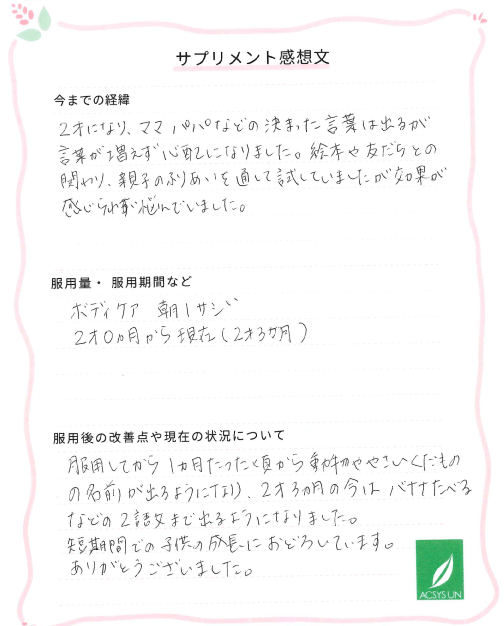 サプリメント感想文
今までの経緯
2才になり、ママ パパなどの決まった言葉は出るが
言葉が増えず心配になりました。絵本や友だちとの
関わり、親子のふれあいを通して試していましたが効果が
感じられず悩んでいました。
服用量・ 服用期間など
ボディケア 朝1サジ
2才0ヵ月から現在(2才3ヵ月)
服用後の改善点や現在の状況について
服用してから1ヵ月たった頃から動物ややさいくだもの
の名前が出るようになり、2才3ヵ月の今はバナナたべる
などの2語文まで出るようになりました。
短期間での子供の成長におどろいています。
ありがとうございました。
ACSYS UN